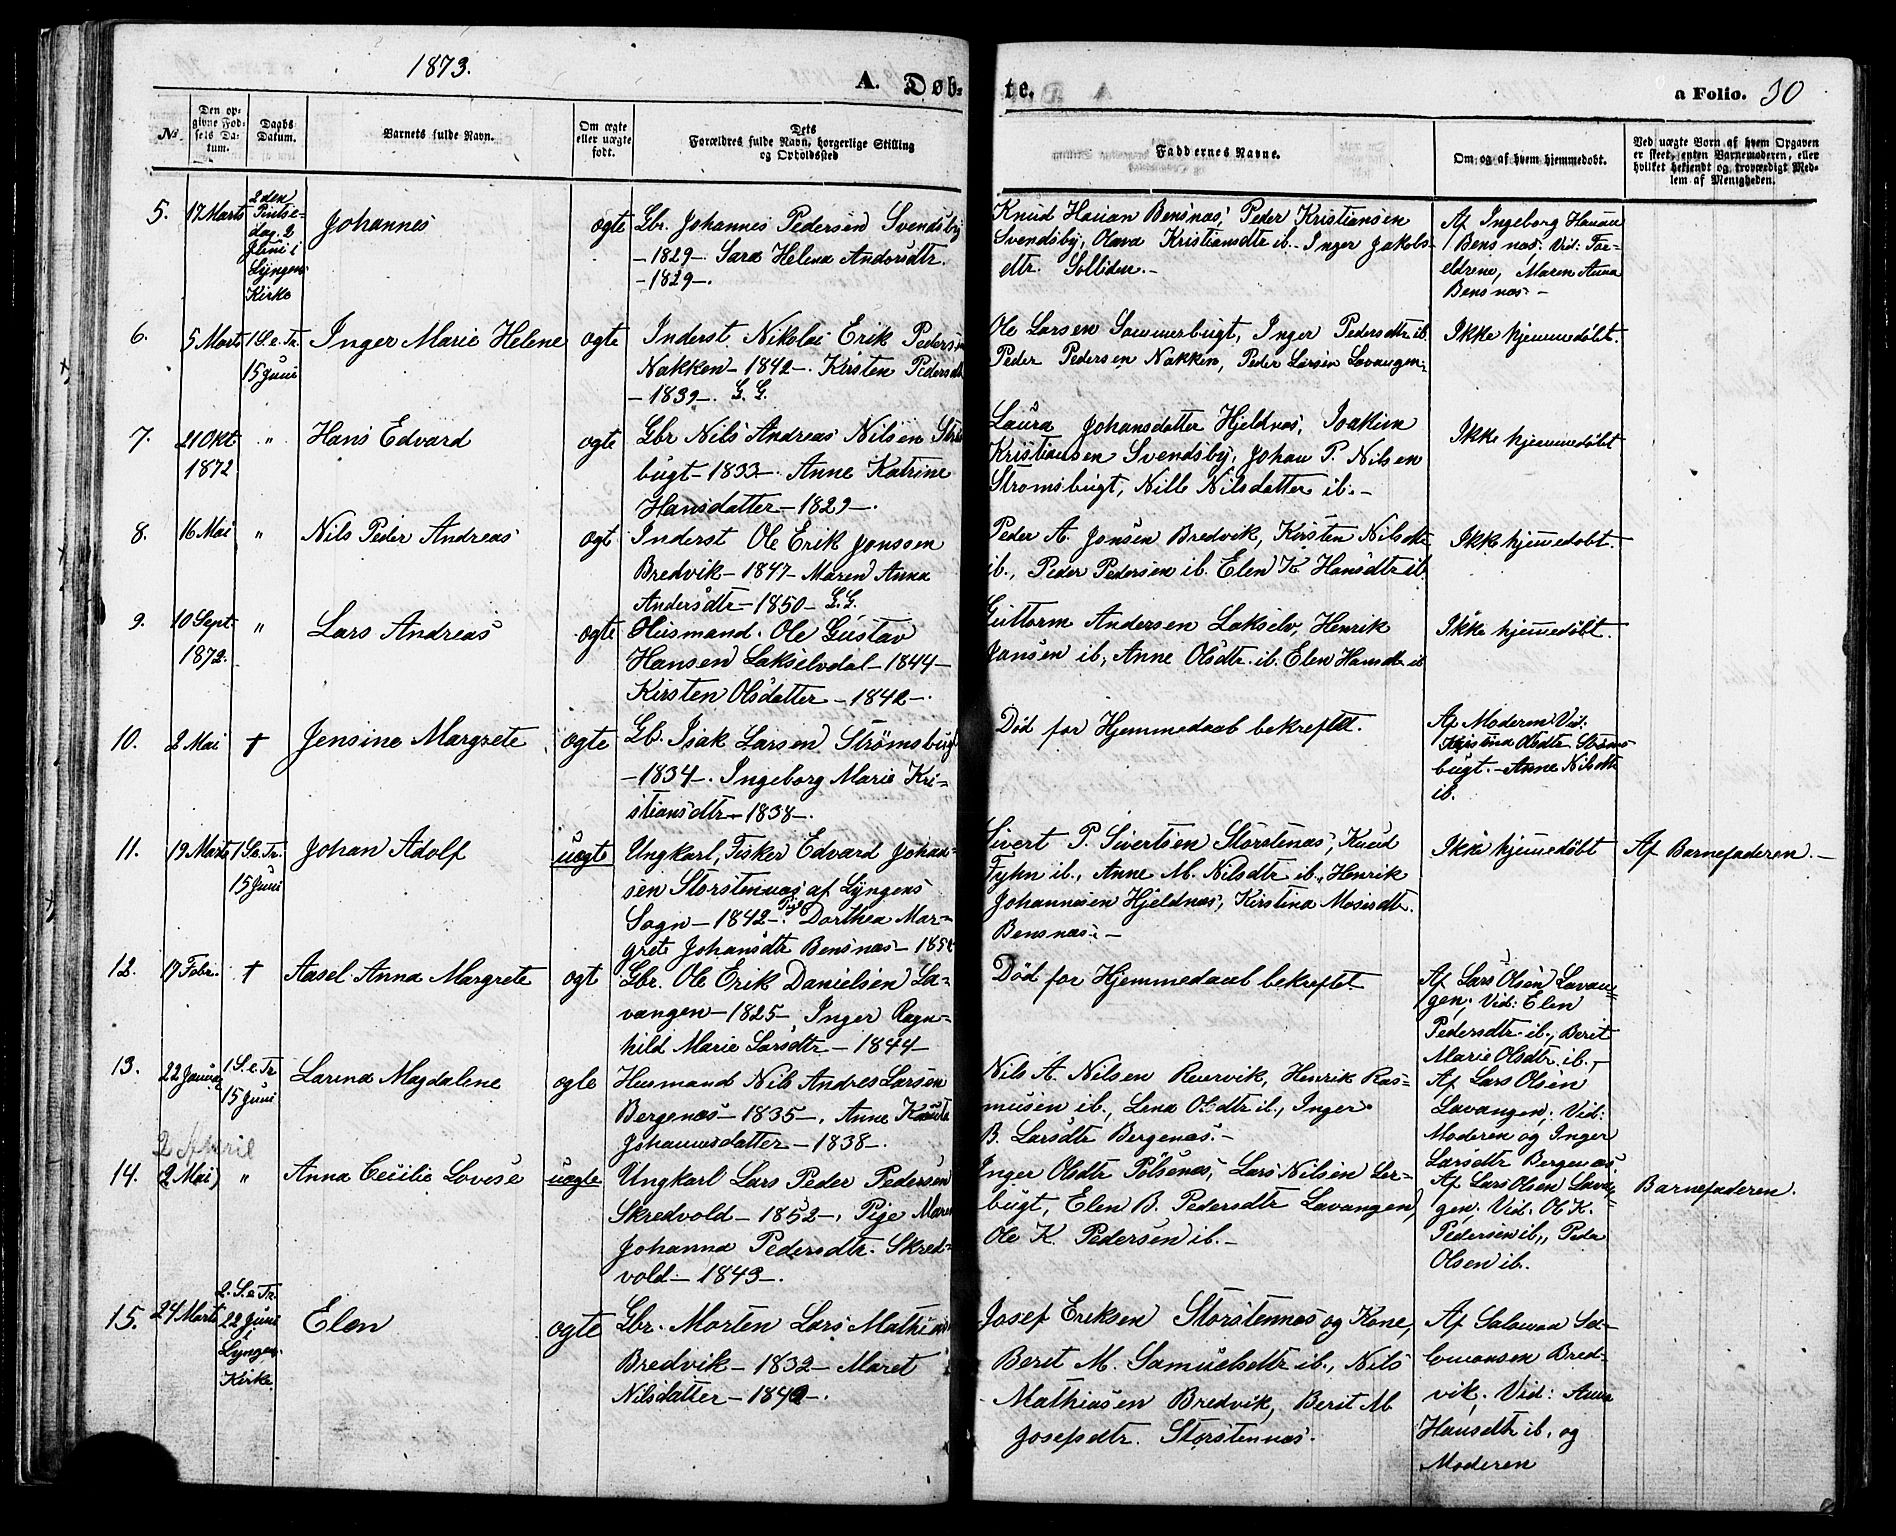 1873.
A. Døb-
te.
a Folio. 30
No.
Den op-
givne Fød-
sels Da-
tum.
Daabs
Datum.
Barnets fulde Navn.
Om ægte
eller uægte
født.
Dets
Forældres fulde Navn, borgerlige Stilling
og Opholdssted
Faddernes Navne.
Om og af hvem hjemmedøbt.
Ved uægte Børn af hvem Opgaven
er skeet, enten Barnemoderen, eller
hvilket bekjendt og troværdigt Med-
lem af Menigheden.
5.
17 Marts
2den
Pintse-
dag 2
Juni i
Lyngen
Kirke
Johannes
ægte
Gbr. Johannes Pedersen Svendsby
- 1829 - Sara Helena Andersdtr.
- 1829 -.
Knud Hanan Bensnæs, Peder Kristiansen
Svendsby, Olava Kristiansdtr ib. - Inger Jakobs-
dtr. Solliden. -
Af Ingeborg Hanan
Bensnæs; Vid: For-
eldrene, Maren Anna
Bensnæs. -
6.
5 Marts
1 S. e. Tr.
15 Juni
Inger Marie Helene
ægte
Inderst Nikolai Erik Pedersen
Nakken - 1842 -. Kirsten Pedersdtr
- 1839 -. G. G.
Ole Larsen Sommerbugt, Inger Pedersdtr ib.
Peder Pedersen Nakken, Peder Larsen Lavangen.
Ikke hjemmedøbt.
7.
21 Okt
1872
"
Hans Edvard
ægte
Gbr Nils Andreas Nilsen Strøms
bugt - 1833 -. Anne Katrine
Hansdatter - 1829 -.
Laura Johansdatter Hjeldnæs, Joakim
Kristiansen Svendsby, Johan P. Nilsen
Strømsbugt, Nille Nilsdatter ib. -
Ikke hjemmedøbt
8.
16 Mai
"
Nils Peder Andreas
ægt
Inderst Ole Erik Jonssen
Bredvik - 1847 - Maren Anna
Andersdtr - 1850 - G. G.
Peder A. Jonsen Bredvik, Kirsten Nilsdtr
ib., Peder Pedersen ib. Elen K. Hansdtr ib.
Ikke hjemmedøbt.
9.
10 Sept.
1872.
"
Lars Andreas
ægte
Husmand. Ole Gustav
Hansen Lakselvdal - 1844 -
Kirsten Olsdatter - 1842 -.
Guttorm Andersen Lakselv, Henrik
Jansen ib, Anne Olsdtr. ib. Elen Hansdtr ib
Ikke hjemmedøbt.
10.
2 Mai
†
Jensine Margrete
ægte
Gb. Isak Larsen Strømsbugt
- 1834 -. Ingeborg Marie Kri-
stiansdtr - 1838 -.
Død før Hjemmedaab bekreftet.
Af Moderen Vid:
Kristina Olsdtr Strøms-
bugt. - Anne Nilsdtr
ib.
11.
19 Marts
1 S. e. Tr.
15 Juni
Johan Adolf
uægte
Ungkarl, Fisker Edvard Johan-
sen Storstennæs af Lyngens
Sogn - 1842 -. Pige Dorthea Mar-
grete Johansdtr Bensnæs -
Sivert P. Sivertsen Storstenæs, Knud
Fyhn ib., Anne M. Nilsdtr ib., Henrik
Johannesen Hjeldnæs, Kirstina Mosesdtr.
Bensnæs. -
Ikke hjemmedøbt
Af Barnefaderen. -
12.
17 Febr.
†
Aasel Anna Margrete
ægt
Gbr. Ole Erik Danielsen La-
vangen - 1825 - Inger Ragn-
hild Marie Larsdtr - 1844 -
Død før Hjemmedaab bekreftet.
Af Lars Olsen Lavan-
gen; Vid: Elen
Pedersdtr ib., Berit
Marie Olsdtr ib. -
13.
22 Januar
1 S. e. Tr
15 Juni
Larina Magdalene
ægte
Husmand Nils Andres Larsen
Bergenæs - 1835 -, Anne
Johannesdatter - 1838 -.
Nils A. Nilsen Reervik, Henrik Ras-
musen ib., Lena Olsdtr ib., Inger
B. Larsdtr Bergenæs. -
Af Lars Olsen
Lavangen; Vid:
Moderen og Inger
Larsdtr Bergenæs.
14.
2 April
(2 Mai)
"
Anna Cecilie Lovise
uægte
Ungkarl Lars Peder Pedersen
Skredvold - 1852 -, Pige Maren
Johanna Pedersdtr. Skred-
vold - 1843 -.
Inger Olsdtr Pølsenæs, Lars Nilsen Ler-
bugt, Elen B. Pedersdtr Lavangen,
Ole K. Pedersen ib. -
Af Lars Olsen Lavan-
gen; Vid. Ol K.
Pedersen ib., Peder
Olsen ib.
Barnefaderen.
15.
24 Marts
2. S. e. Tr.
22 Juni
i
Lyngen
Kirke
Elen
ægte
Gbr. Morten Lars Mathiasen
Bredvik - 1832 - Maret
Nilsdatter - 1840 -.
Josef Eriksen Storstennæs og Kone,
Berit M. Samuelsdtr ib., Nils
Mathiasen Bredvik, Berit M
Josefsdtr. Storstennæs.
Af Salomon Sa-
lomonsen Bred-
vik; Vid: Anna
Hansdtr ib, og
Moderen